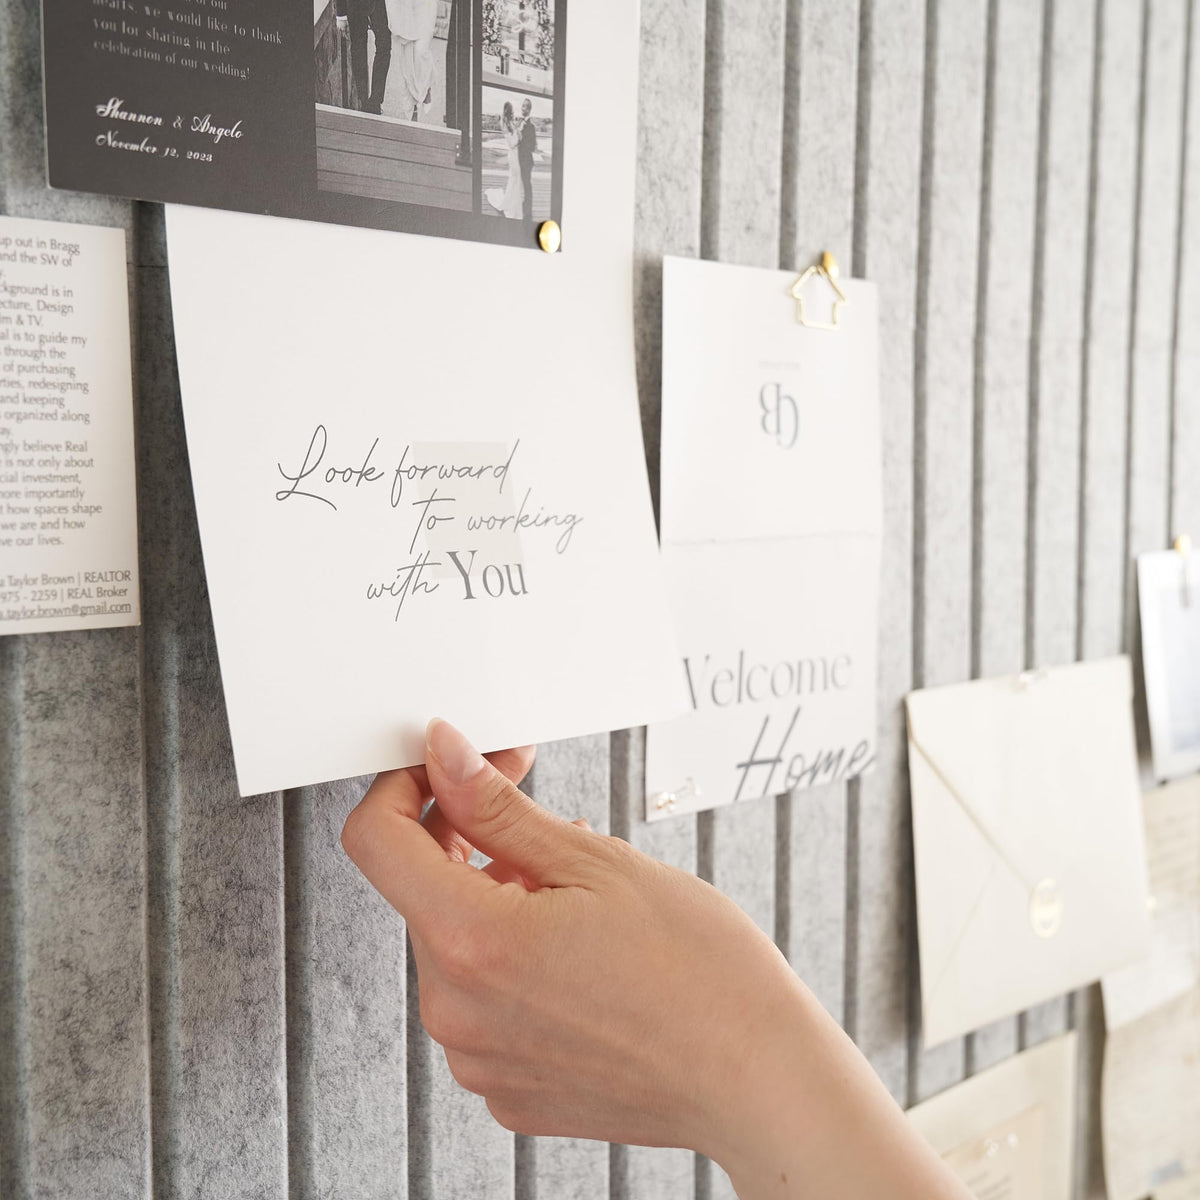 hearts, we would like to thank
you for sharing in the
celebration of our wedding!
Shannon & Angelo
November 12, 2023
up out in Bragg
and the SW of
ground is in
ecture, Design
lm & TV.
al is to guide my
through the
of purchasing
rties, redesigning
and keeping
organized along
ay.
ngly believe Real
is not only about
cial investment,
more importantly
t how spaces shape
we are and how
ve our lives.
a Taylor Brown | REALTOR
975 - 2259 | REAL Broker
a.taylor.brown@gmail.com
Look forward
to working
with You
Welcome
Home